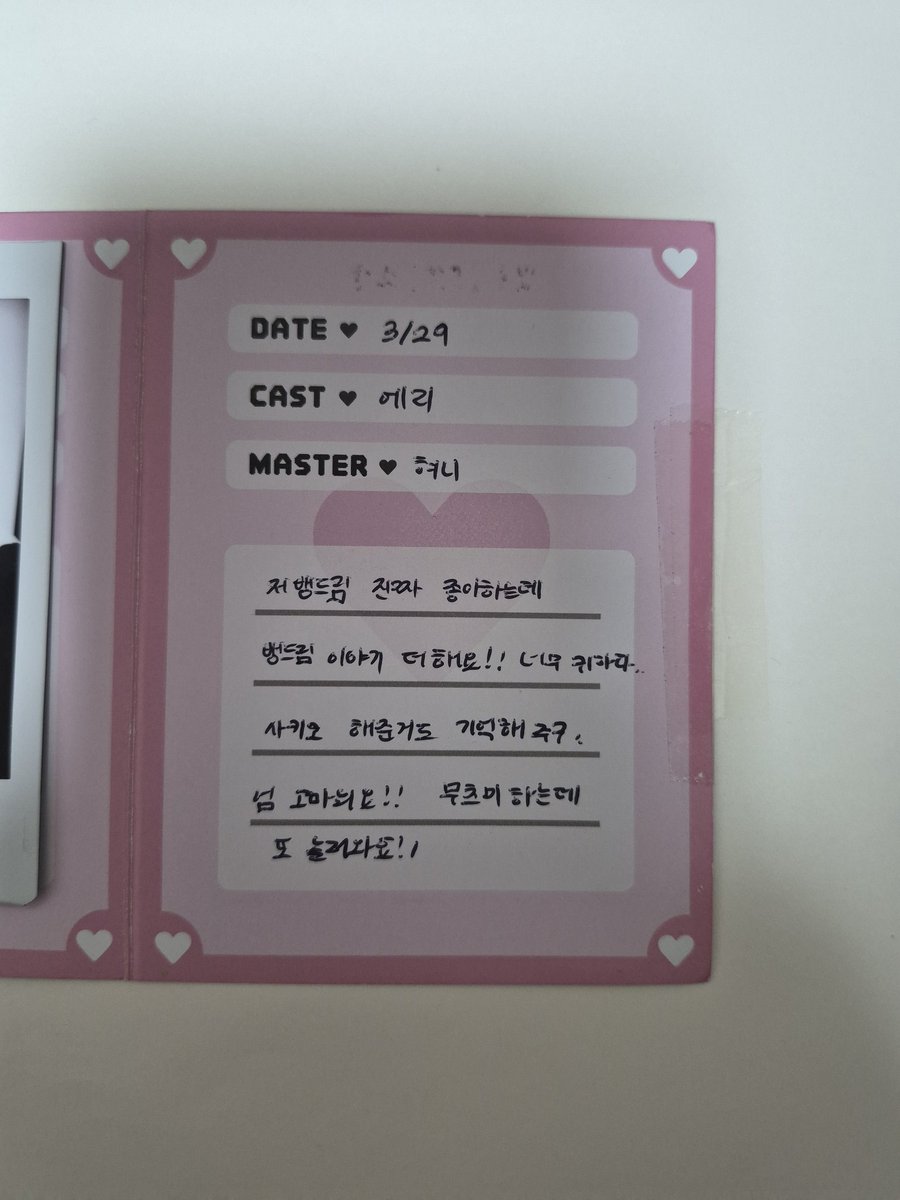 DATE ♥ 3/29
CAST ♥ 에리
MASTER ♥ 혀니
저 뱅드림 진짜 좋아하는데
뱅드림 이야기 더 해요!! 너무 귀하다..
사키오 해준거도 기억해주구
넘 고마워요!! 무츠미 하는데
또 놀러와요!!